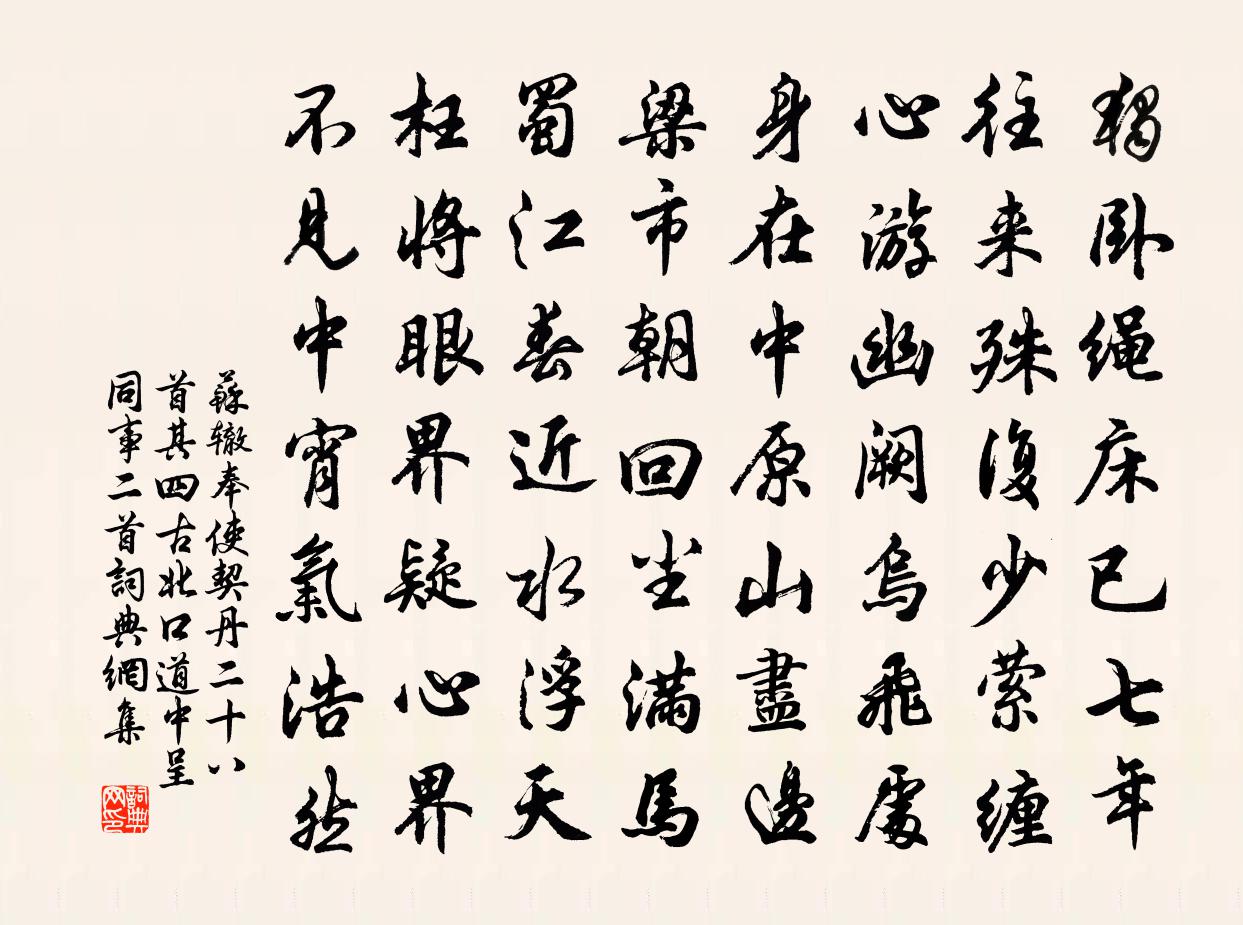 獨卧绳床已七年
往来殊復少萦缠
心游幽阙烏飛處
身在中原山盡邊
梁市朝回尘满馬
蜀江春近水浮天
枉將眼界疑心界
不見中宵氣浩然
蘇辙奉使契丹二十八
首其四古北口道中呈
同事二首詞典網集
詞典网印